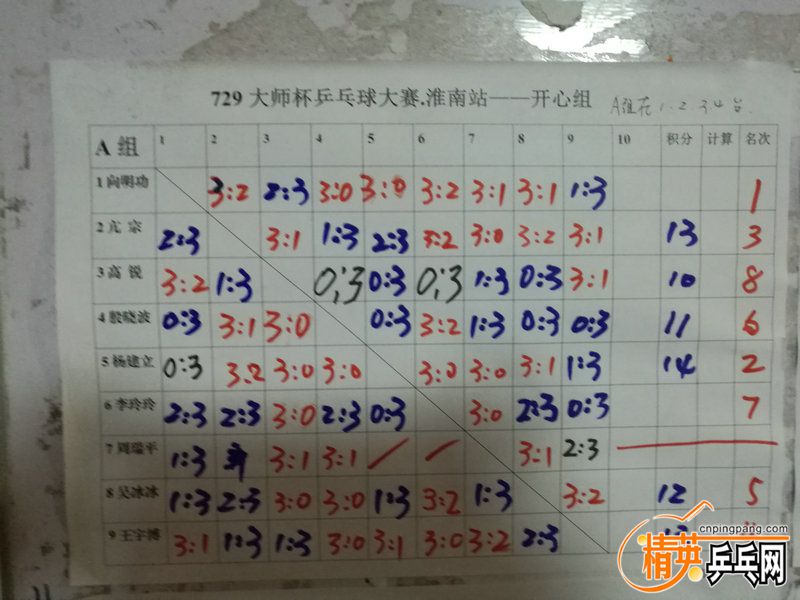 729 大师杯乒乓球大赛.淮南站——开心组 A组在1.2.3.4台.
A 组 1 2 3 4 5 6 7 8 9 10 积分 计算 名次
1 向明功 3:2 2:3 3:0 3:0 3:2 3:1 3:1 1:3 1
2 亢 宗 2:3 3:1 1:3 2:3 3:2 3:0 3:2 3:1 13 3
3 高 锐 3:2 1:3 0:3 0:3 0:3 1:3 0:3 3:1 10 8
4 殷晓波 0:3 3:1 3:0 0:3 3:2 1:3 0:3 0:3 11 6
5 杨建立 0:3 3:2 3:0 3:0 3:0 3:0 3:1 1:3 14 2
6 李玲玲 2:3 2:3 3:0 2:3 0:3 3:0 2:3 0:3 7
7 周瑞平 1:3 3:1 3:1 3:1 2:3
8 吴冰冰 1:3 2:3 3:0 3:0 1:3 3:2 1:3 3:2 12 5
9 王宇博 3:1 1:3 1:3 3:0 3:1 3:0 3:2 2:3
cnpingpang.com
精英乒乓网